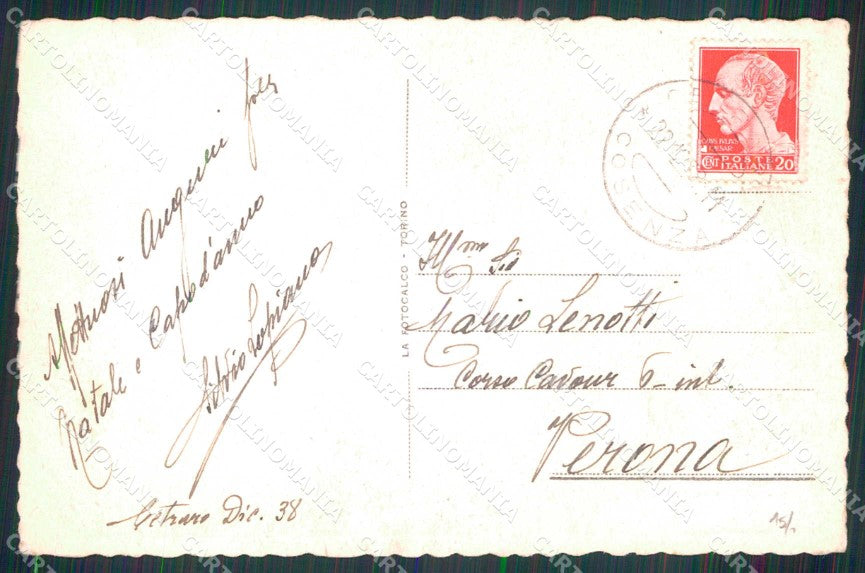 Affettuosi Auguri per
Natale e Capodanno
Silvio Lopiano
Cetraro Dic. 38
LA FOTOCALCO - TORINO
CAIVS IVLIVS
CAESAR
CENT POSTE ITALIANE 20
COSENZA
Ill.mo Sig
Mario Lenotti
Corso Cavour 6 int.
Verona
15/
CARTOLINOMANIA